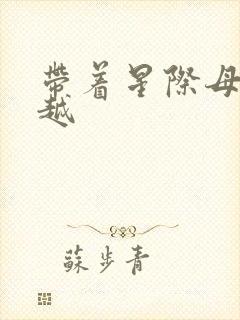 帶着星際母
越
蘇步青